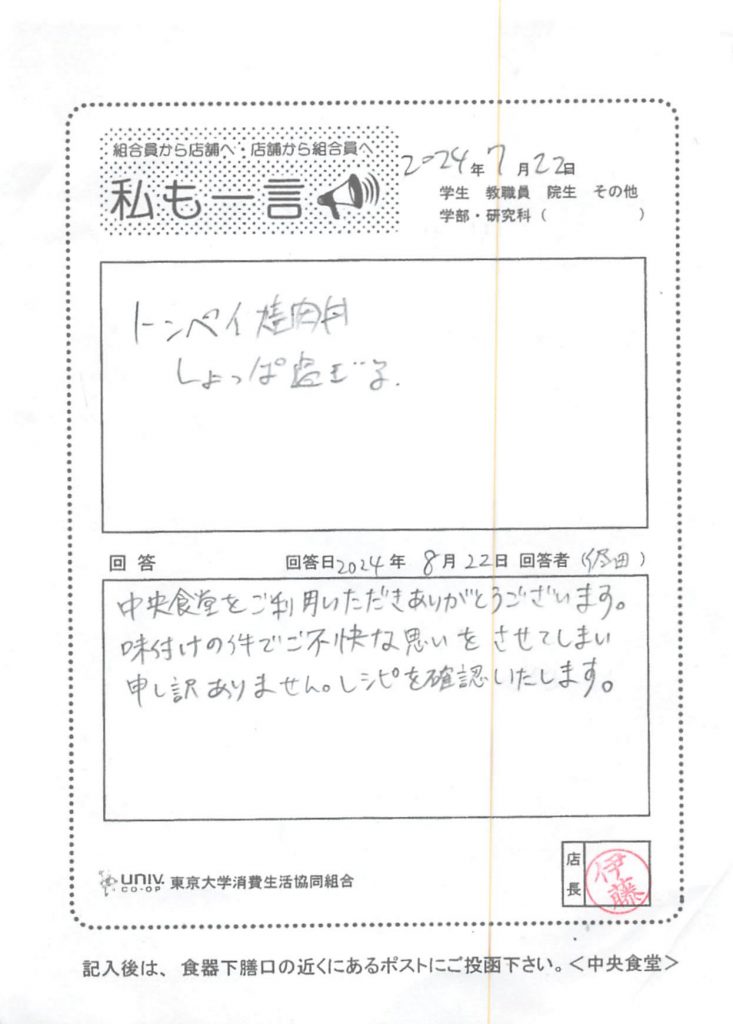 組合員から店舗へ・店舗から組合員へ
私も一言
2024年7月22日
学生 教職員 院生 その他
学部・研究科( )
トンペイ焼肉丼
しょっぱ
回答 回答日2024年8月22日 回答者( 田)
中央食堂をご利用いただきありがとうございます。
味付けの件でご不快な思いをさせてしまい
申し訳ありません。レシピを確認いたします。
UNIV. CO-OP 東京大学消費生活協同組合
店長 伊藤
記入後は、食器下膳口の近くにあるポストにご投函下さい。<中央食堂>